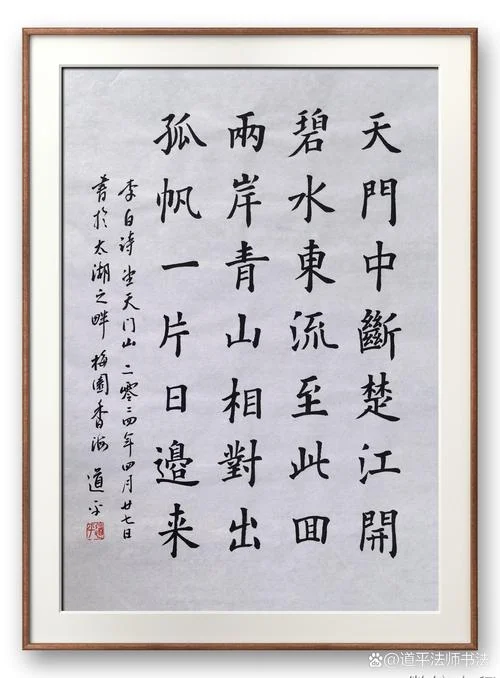 天門中斷楚江開
碧水東流至此回
兩岸青山相對出
孤帆一片日邊来
李白诗望天门山二零二四年四月廿七日
書於太湖之畔梅園香海道平
@道平法师书法